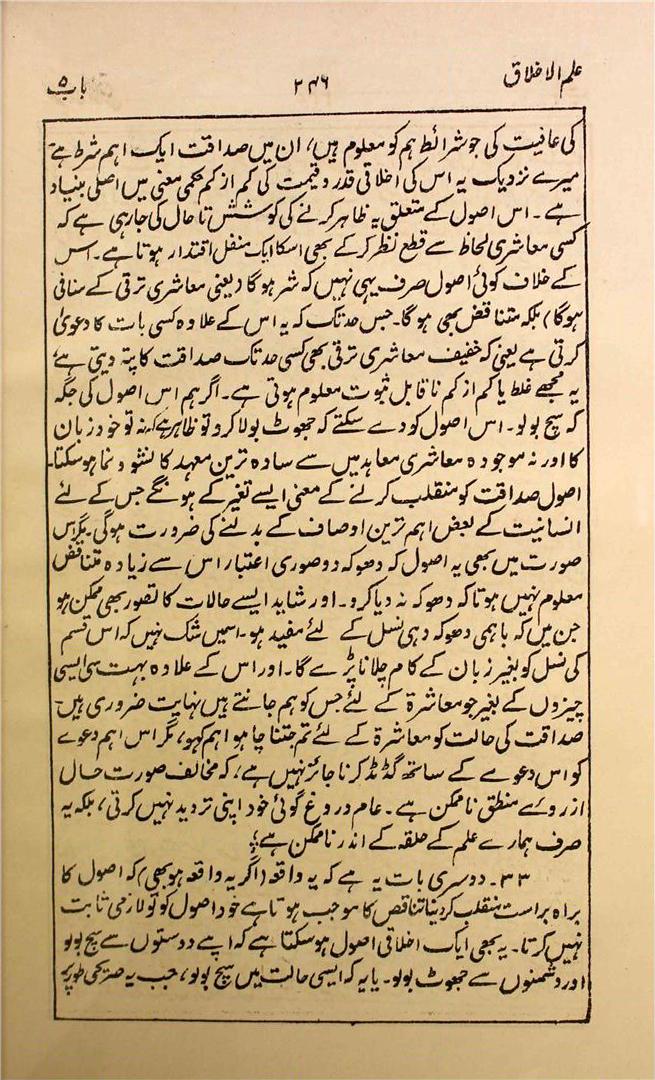 علم الاخلاق
۲۴۶
باب ۵
کی عافیت کی جو شرائط ہم کو معلوم ہیں، ان میں صداقت ایک اہم شرط ہے
میرے نزدیک یہ اس کی اخلاقی قدر و قیمت کی کم از کم حکمی معنی میں اصلی بنیاد
ہے۔ اس اصول کے متعلق یہ ظاہر کرنے کی کوشش تا حال کی جارہی ہے کہ
کسی معاشری لحاظ سے قطع نظر کرکے بھی اسکا ایک منفل اقتدار ہوتا ہے۔ اس
کے خلاف کوئی اصول صرف یہی نہیں کہ شر ہوگا (یعنی معاشری ترقی کے منافی
ہوگا) بلکہ متناقض بھی ہوگا۔ جس حد تک کہ یہ اس کے علاوہ کسی بات کا دعویٰ
کرتی ہے یعنی کہ خفیف معاشری ترقی بھی کسی حد تک صداقت کا پتہ دیتی ہے،
یہ مجھے غلط یا کم از کم ناقابل ثبوت معلوم ہوتی ہے۔ اگر ہم اس اصول کی جگہ
کہ سچ بولو۔ اس اصول کو دے سکتے کہ جھوٹ بولا کرو تو ظاہر ہے کہ نہ تو خود زبان
کا اور نہ موجودہ معاشری معاہد میں سے سادہ ترین معہد کا نشو و نما ہوسکتا۔
اصول صداقت کو منقلب کرنے کے معنی ایسے تغیر کے ہونگے جس کے لئے
انسانیت کے بعض اہم ترین اوصاف کے بدلنے کی ضرورت ہوگی۔ مگر اس
صورت میں بھی یہ اصول کہ دھوکہ دو صوری اعتبار اس سے زیادہ متناقض
معلوم نہیں ہوتا کہ دھوکہ نہ دیا کرو۔ اور شاید ایسے حالات کا تصور بھی ممکن ہو
جن میں کہ باہمی دھوکہ دہی نسل کے لئے مفید ہو۔ اسمیں شک نہیں کہ اس قسم
کی نسل کو بغیر زبان کے کام چلانا پڑے گا۔ اور اس کے علاوہ بہت سی ایسی
چیزوں کے بغیر جو معاشرۃ کے لئے جس کو ہم جانتے ہیں نہایت ضروری ہیں۔
صداقت کی حالت کو معاشرۃ کے لئے تم جتنا چاہو اہم کہو، مگر اس اہم دعوے
کو اس دعوے کے ساتھ گڈ مڈ کرنا جائز نہیں ہے، کہ مخالف صورت حال
از روئے منطق ناممکن ہے۔ عام دروغ گوئی خود اپنی تردید نہیں کرتی، بلکہ یہ
صرف ہمارے علم کے حلقہ کے اندر ناممکن ہے؛
۳۳۔ دوسری بات یہ ہے کہ یہ واقعہ (اگر یہ واقعہ ہو بھی) کہ اصول کا
براہ براست منقلب کردینا تناقض کا موجب ہوتا ہے خود اصول کو تو لازمی ثابت
نہیں کرتا۔ یہ بھی ایک اخلاقی اصول ہوسکتا ہے کہ اپنے دوستوں سے سچ بولو
اور دشمنوں سے جھوٹ بولو۔ یا یہ کہ ایسی حالت میں سچ بولو، جب یہ صریحی طور پر